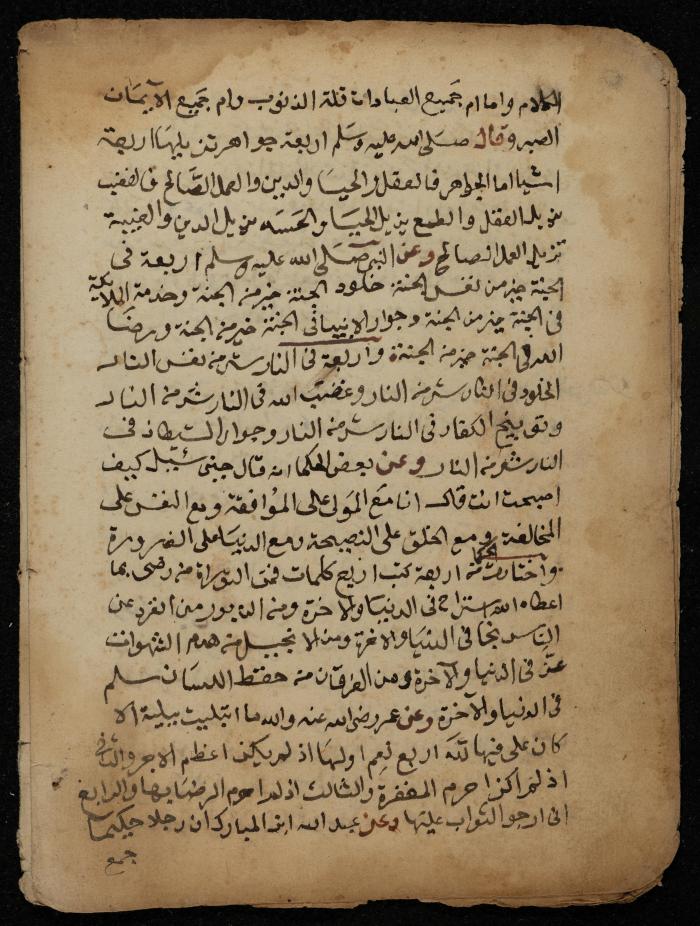 الكلام واما ام جميع العبادات قلة الذنوب وام جميع الآيمان
الصبر وقال صلى الله عليه وسلم اربعة جواهر تزيلها اربعة
اشيا اما الجواهر فالعقل والحيا والدين والعمل الصالح فالغضب
يزيل العقل والطمع يزيل الحيا والحسد يزيل الدين والغيبة
تزيل العمل الصالح وعن النبي صلى الله عليه وسلم اربعة في
الجنة خير من نفس الجنة خلود الجنة خير من الجنة وخدمة الملايكة
في الجنة خير من الجنة وجوار الانبيا في الجنة خير من الجنة ورضا
الله في الجنة خير من الجنة واربعة في النار شر من نفس النار
الخلود في النار شر من النار وغضب الله في النار شر من النار
وتوبيخ الكفار في النار شر من النار وجوار الشيطان في
النار شر من النار وعن بعض الحكما انه قال حين سئيل كيف
اصبحت انت قال انا مع المولى على الموافقة ومع النفس على
المخالفة ومع الخلق على النصيحة ومع الدنيا على الضرورة
واختارت الحكما من اربعة كتب اربع كلمات فمن التوراة من رضى بما
اعطاه الله استراح في الدنيا والاخرة ومن الزبور من انفرد عن
الناس نجا في الدنيا والاخرة ومن الانجيل من هدم الشهوات
عز في الدنيا والآخرة ومن الفرقان من حفظ اللسان سلم
في الدنيا والآخرة وعن عمر رضى الله عنه والله ما ابتليت ببلية الا
كان على فيها لله اربع نعم اولها اذ لم يكن اعظم الاجر والثاني
اذ لم اكن احرم المغفرة والثالث اذ لم احرم الرضا بها والرابع
اني ارجو الثواب عليها وعن عبد الله ابن المبارك ان رجلا حكيما
جمع